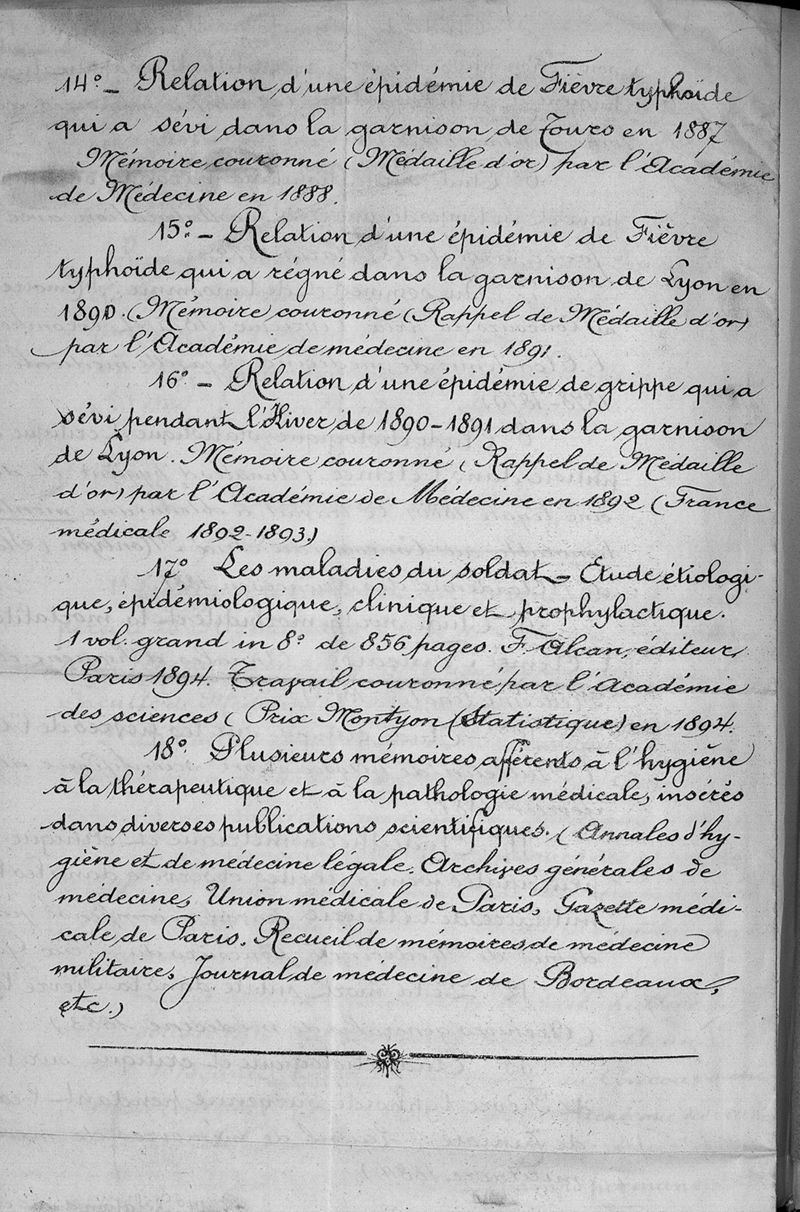 14º_ Relation d'une épidémie de Fièvre typhoïde
qui a sévi dans la garnison de Tours en 1887
Mémoire couronné (Médaille d'or) par l'Académie
de Médecine en 1888.
15º_ Relation d'une épidémie de Fièvre
typhoïde qui a régné dans la garnison de Lyon en
1890. (Mémoire couronné (Rappel de Médaille d'or)
par l'Académie de médecine en 1891.
16º_ Relation d'une épidémie de grippe qui a
sévi pendant l'Hiver de 1890-1891 dans la garnison
de Lyon. Mémoire couronné (Rappel de Médaille
d'or) par l'Académie de Médecine en 1892 (France
médicale 1892-1893.)
17º Les maladies du soldat_ Etude étiologi-
que, épidémiologique, clinique et prophylactique.
1 vol. grand in 8º de 856 pages. F. Alcan, éditeur,
Paris 1894. Travail couronné par l'Académie
des sciences (Prix Montyon (Statistique) en 1894.
18º. Plusieurs mémoires afférents à l'hygiène
à la thérapeutique et à la pathologie médicale, insérés
dans diverses publications scientifiques. (Annales d'hy-
giène et de médecine légale. Archives générales de
médecine, Union médicale de Paris, Gazette médi-
cale de Paris. Recueil de mémoires de médecine
militaire, Journal de médecine de Bordeaux,
etc.)